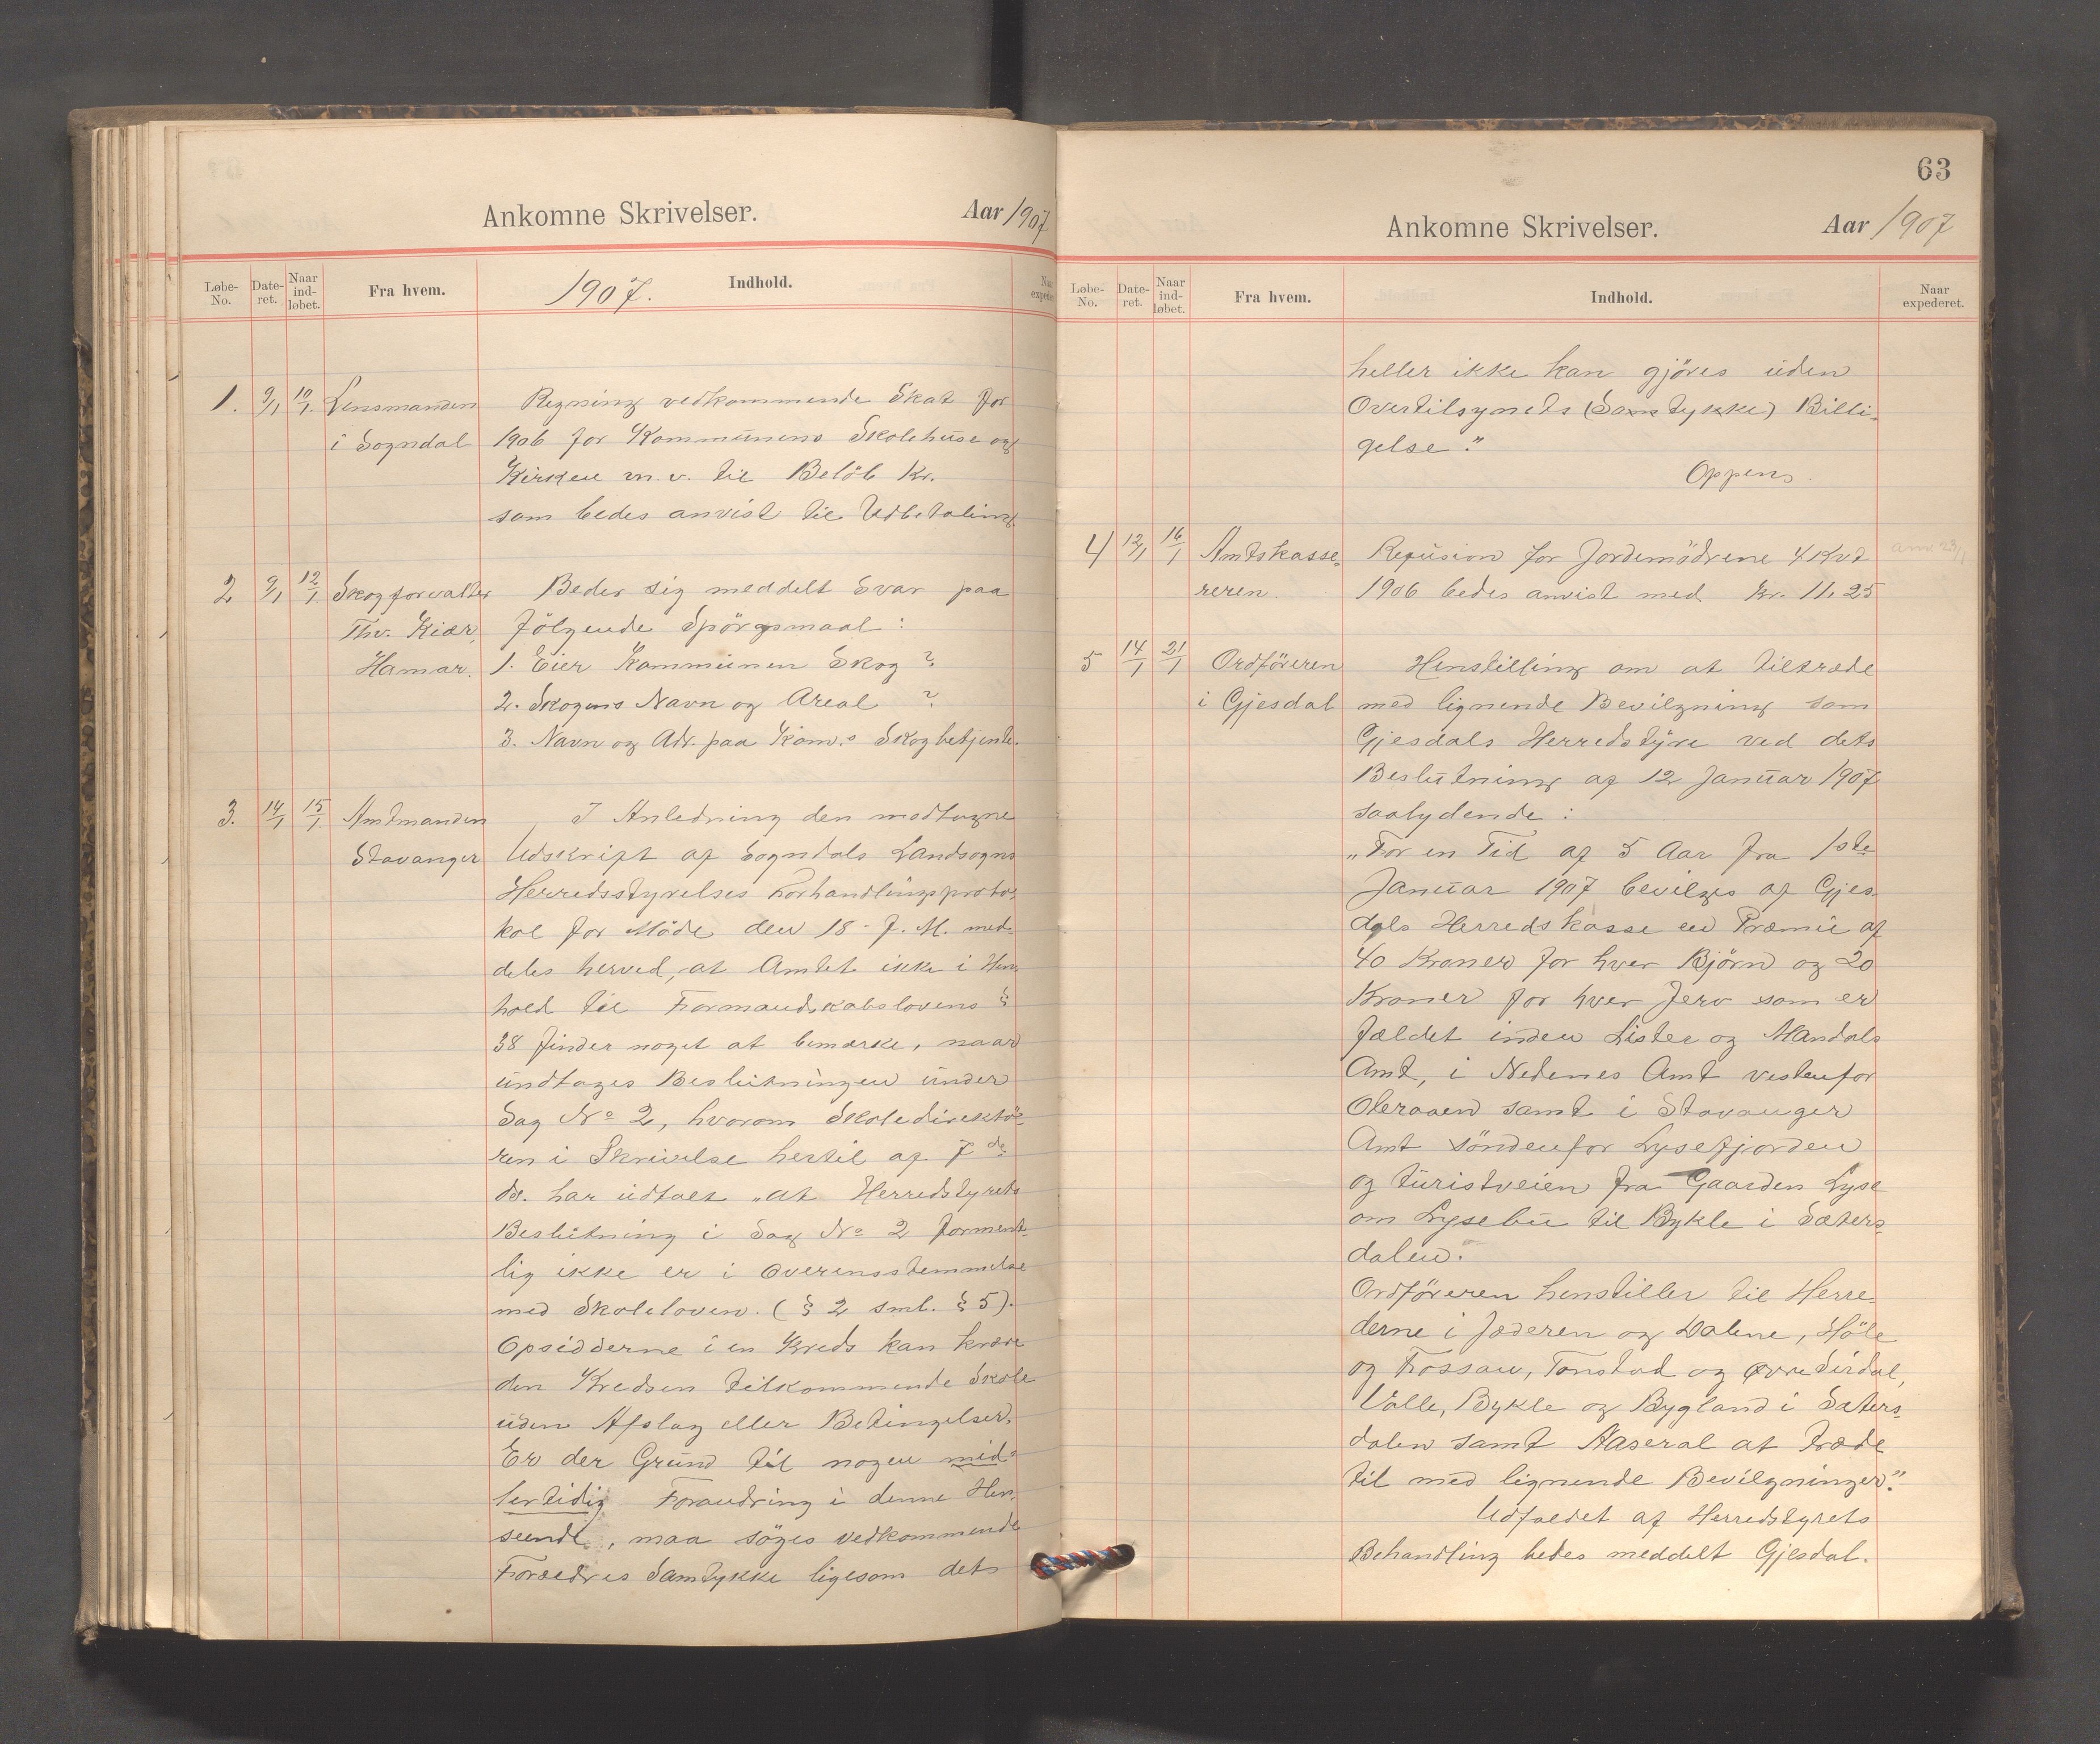 Ankomne Skrivelser. Aar 1907
Løbe-No. Date-ret. Naar ind-løbet. Fra hvem. 1907. Indhold. Naar expede
1. 9/1 10/1. Lensmanden Regning vedkommende Skat for
i Sogndal 1906 for Kommunens Skolehuse og
Kirken m.v. til Beløb Kr.
som bedes anvist til Udbetaling
2 9/1 12/1. Skogforvalter Beder sig meddelt Svar paa
Thv. Kiær, følgende Spörgsmaal:
Hamar. 1. Eier Kommunen Skog?
2. Skogens Navn og Areal?
3. Navn og Adr. paa Kom.s Skogbetjente.
3. 14/1 15/1. Amtmanden I Anledning den modtagne
Stavanger Udskrift af Sogndals Landsogns
Herredsstyrelses Forhandlingsproto-
kol for Möde den 18 f. M. med-
deles herved, at Amtet ikke i Hen-
hold til Formandskabslovens §
38 finder noget at bemærke, naar
undtages Beslutningen under
Sag No 2, hvorom Skoledirektö-
ren i Skrivelse hertil af 7de
ds. har udtalt „at Herredstyrets
Beslutning i Sag No 2 forment-
lig ikke er i Overensstemmelse
med Skoleloven. (§ 2 sml. § 5).
Opsidderne i en Kreds kan kræve
den Kredsen tilkommende Skole
uden Afslag eller Betingelser.
Er der Grund til nogen mid-
lertidig Forandring i denne Hen-
seende, maa söges vedkommende
Forældres Samtykke ligesom dets
63
Ankomne Skrivelser. Aar 1907
Løbe-No. Date-ret. Naar ind-løbet. Fra hvem. Indhold. Naar expederet.
heller ikke kan gjöres uden
Overtilsynets (Samtykke) Billi-
gelse."
Oppens.
4 12/1 16/1 Amtskasse- Refusion for Jordemödrene 4 Kvt anv 23/1
reren. 1906 bedes anvist med Kr. 11,25
5 14/1 21/1 Ordföreren Henstilling om at tiltræde
i Gjesdal med lignende Bevilgning som
Gjesdals Herredstyre ved dets
Beslutning af 12 Januar 1907
saalydende:
„For en Tid af 5 Aar fra 1ste
Januar 1907 bevilges af Gjes-
dals Herredskasse en Præmie af
40 Kroner for hver Björn og 20
Kroner for hver Jerv som er
fældet inden Lister og Mandals
Amt, i Nedenes Amt vestenfor
Oteraaen samt i Stavanger
Amt söndenfor Lysefjorden
og turistveien fra Gaarden Lyse
om Lysebu til Bykle i Sæters-
dalen.
Ordföreren henstiller til Herre-
derne i Jæderen og Dalene, Höle
og Fossan, Tonstad og Øvre Sirdal,
Valle, Bykle og Bygland i Sæters-
dalen samt Aaseral at træde
til med lignende Bevilgninger."
Udfaldet af Herredstyrets
Behandling bedes meddelt Gjesdal.